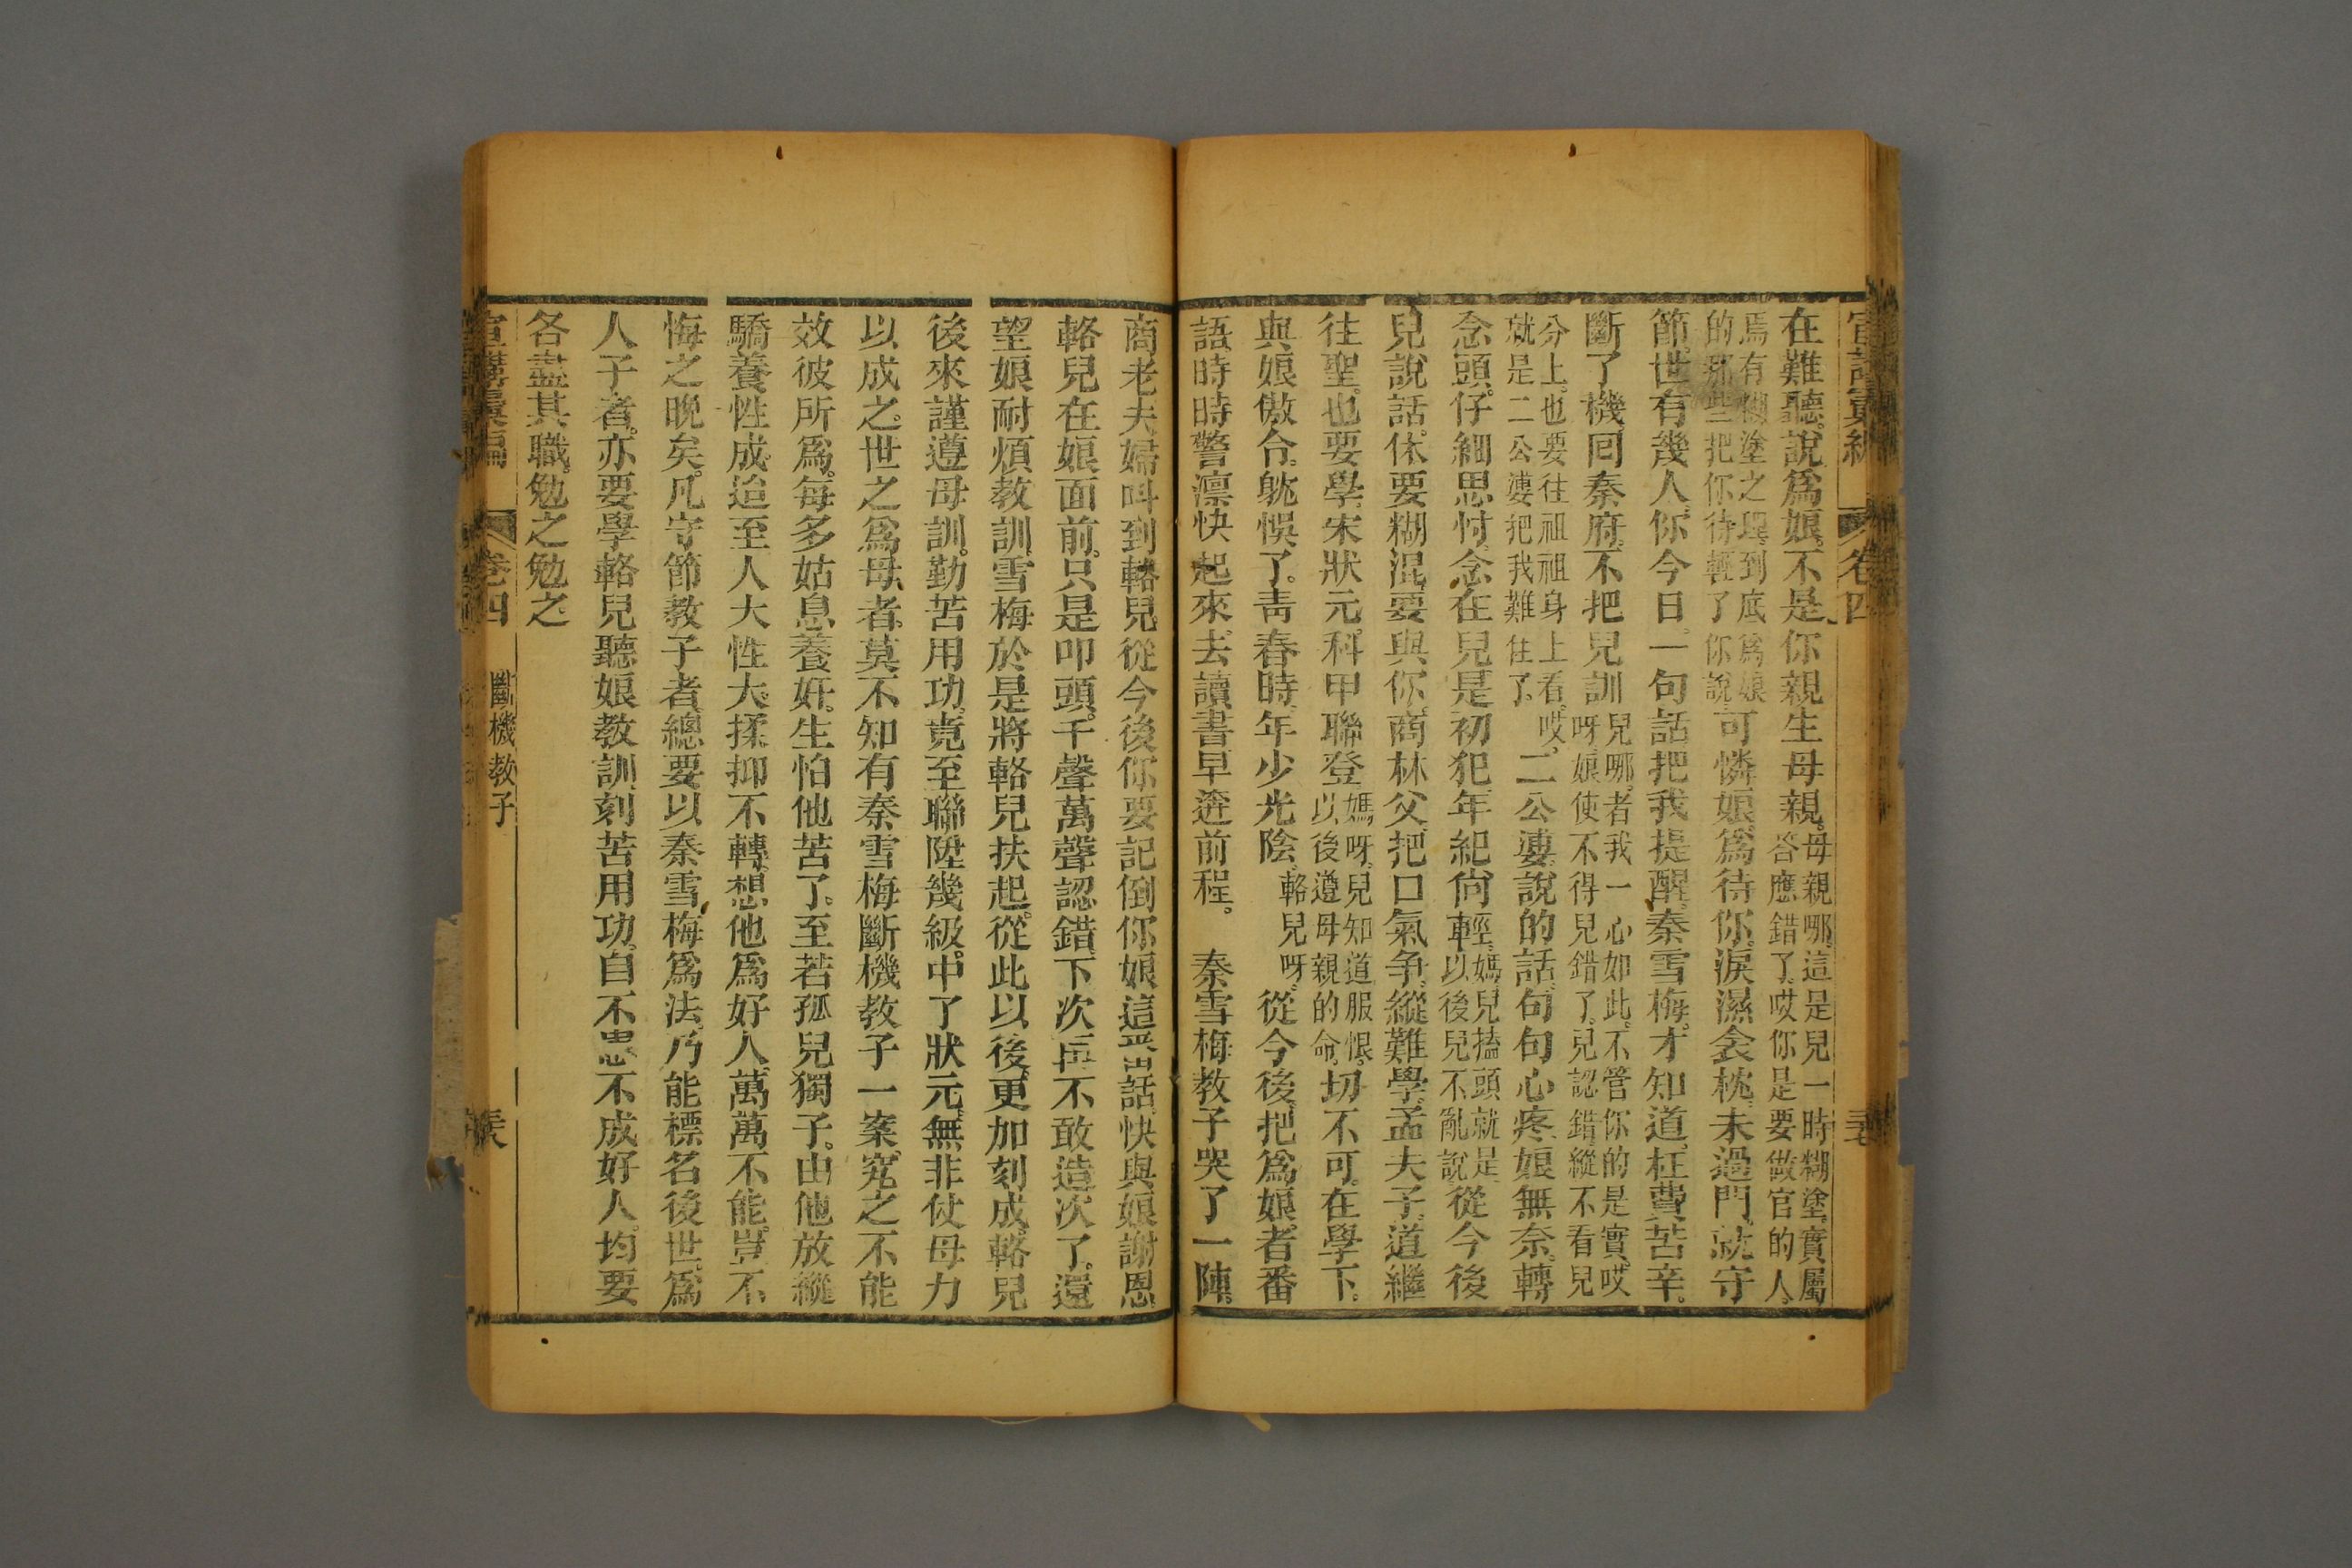 卷四
在難聽。說爲娘。不是你親生母親。母親哪。這是兒一時糊塗。實屬
答應錯了。哎你是要做官的人。
焉有糊塗之理。到底爲娘
的那些把你待輕了你說。可憐娘。爲待你。淚濕衾枕。未過門。就守
節。世有幾人。你今日。一句話。把我提醒。秦雪梅。才知道。枉費苦辛。
斷了機。回秦府。不把兒訓
兒哪。者我一心如此。不管你的是實。哎
呀娘使不得兒錯了。兒認錯。縱不看兒
分上。也要往祖祖身上看。哎
就是二公婆把我難住了。二公婆。說的話。句句心疼。娘無奈。轉
念頭。仔細思忖。念在兒。是初犯。年紀尙輕。媽兒搕頭就是
以後兒不亂說。從今後
兒說話。休要糊混。要與你。商林父。把口氣爭。縱難學。孟夫子。道繼
往聖。也要學。宋狀元。科甲聯登。媽呀。兒知道服恨。
以後遵母親的命。切不可。在學下。
與娘傲合。躭悞了。靑春時。年少光陰。輅兒呀。從今後。把爲娘。者番
語。時時警凛。快起來。去讀書。早遊前程。　秦雪梅教子哭了一陣。
商老夫婦。呌到輅兒。從今後你要記倒你娘這些話。快與娘謝恩。
輅兒在娘面前。只是叩頭。千聲萬聲認錯。下次再不敢造次了。還
望娘耐煩教訓。雪梅於是將輅兒扶起。從此以後。更加刻成。輅兒
後來謹遵母訓。勤苦用功。竟至聯陞幾級。中了狀元。無非仗母力
以成之。世之爲母者。莫不知有秦雪梅斷機教子一案。究之不能
效彼所爲。每多姑息養奸。生怕他苦了。至若孤兒獨子。由他放縱
驕養性成。迨至人大性大。揉抑不轉。想他爲好人。萬萬不能。豈不
悔之晚矣。凡守節教子者。總要以秦雪梅爲法。乃能標名後世。爲
人子者。亦要學輅兒聽娘教訓。刻苦用功。自不患不成好人。均要
各盡其職。勉之勉之
宣講彙編　卷四　斷機教子